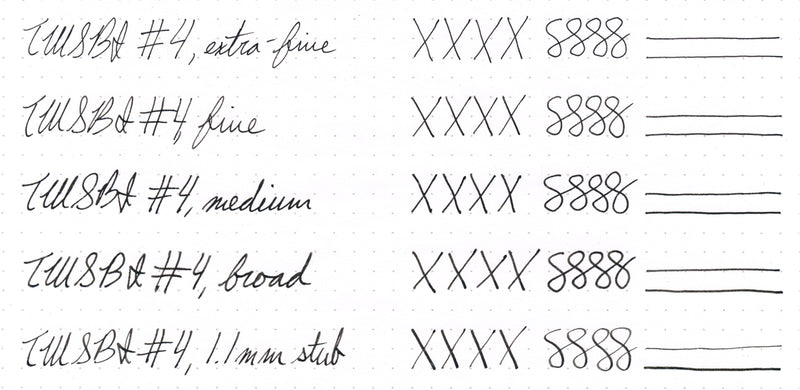 TWSBI #4, extra-fine XXXX 8888
TWSBI #4, fine XXXX 8888
TWSBI #4, medium XXXX 8888
TWSBI #4, broad XXXX 8888
TWSBI #4, 1.1mm stub XXXX 8888